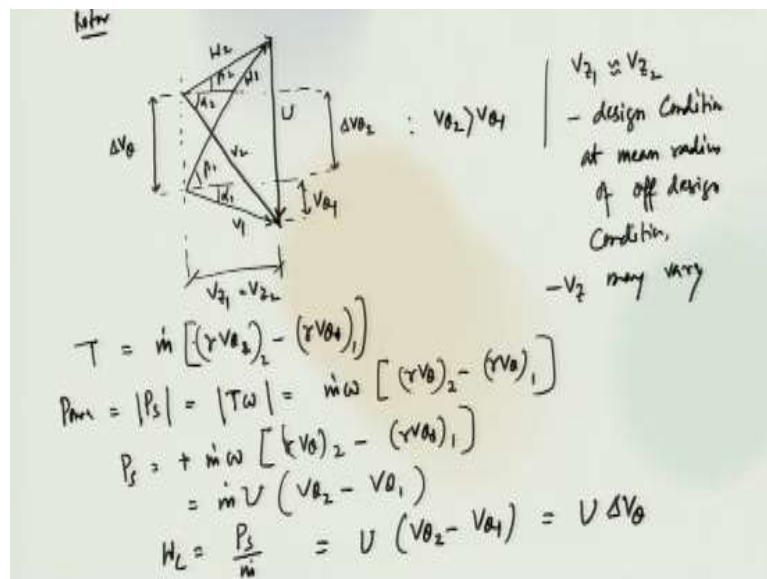 Rotor
W₂
β₂
W₁
α₂
U
ΔVθ
V₂
ΔVθ₂ : Vθ₂ > Vθ1
β₁
α₁
Vθ1
V₁
Vz₁ = Vz₂
Vz₁ ≈ Vz₂
- design Condition
at mean radius
of off design
Condition,
- Vz may vary
T = ṁ [(rVθ₂)₂ - (rVθ1)₁]
= |Ps| = |Tω| = ṁω [(rVθ)₂ - (rVθ)₁]
Ps = + ṁω [(rVθ)₂ - (rVθ1)₁]
= ṁU (Vθ₂ - Vθ₁)
= Ps/ṁ = U (Vθ₂ - Vθ1) = U ΔVθ